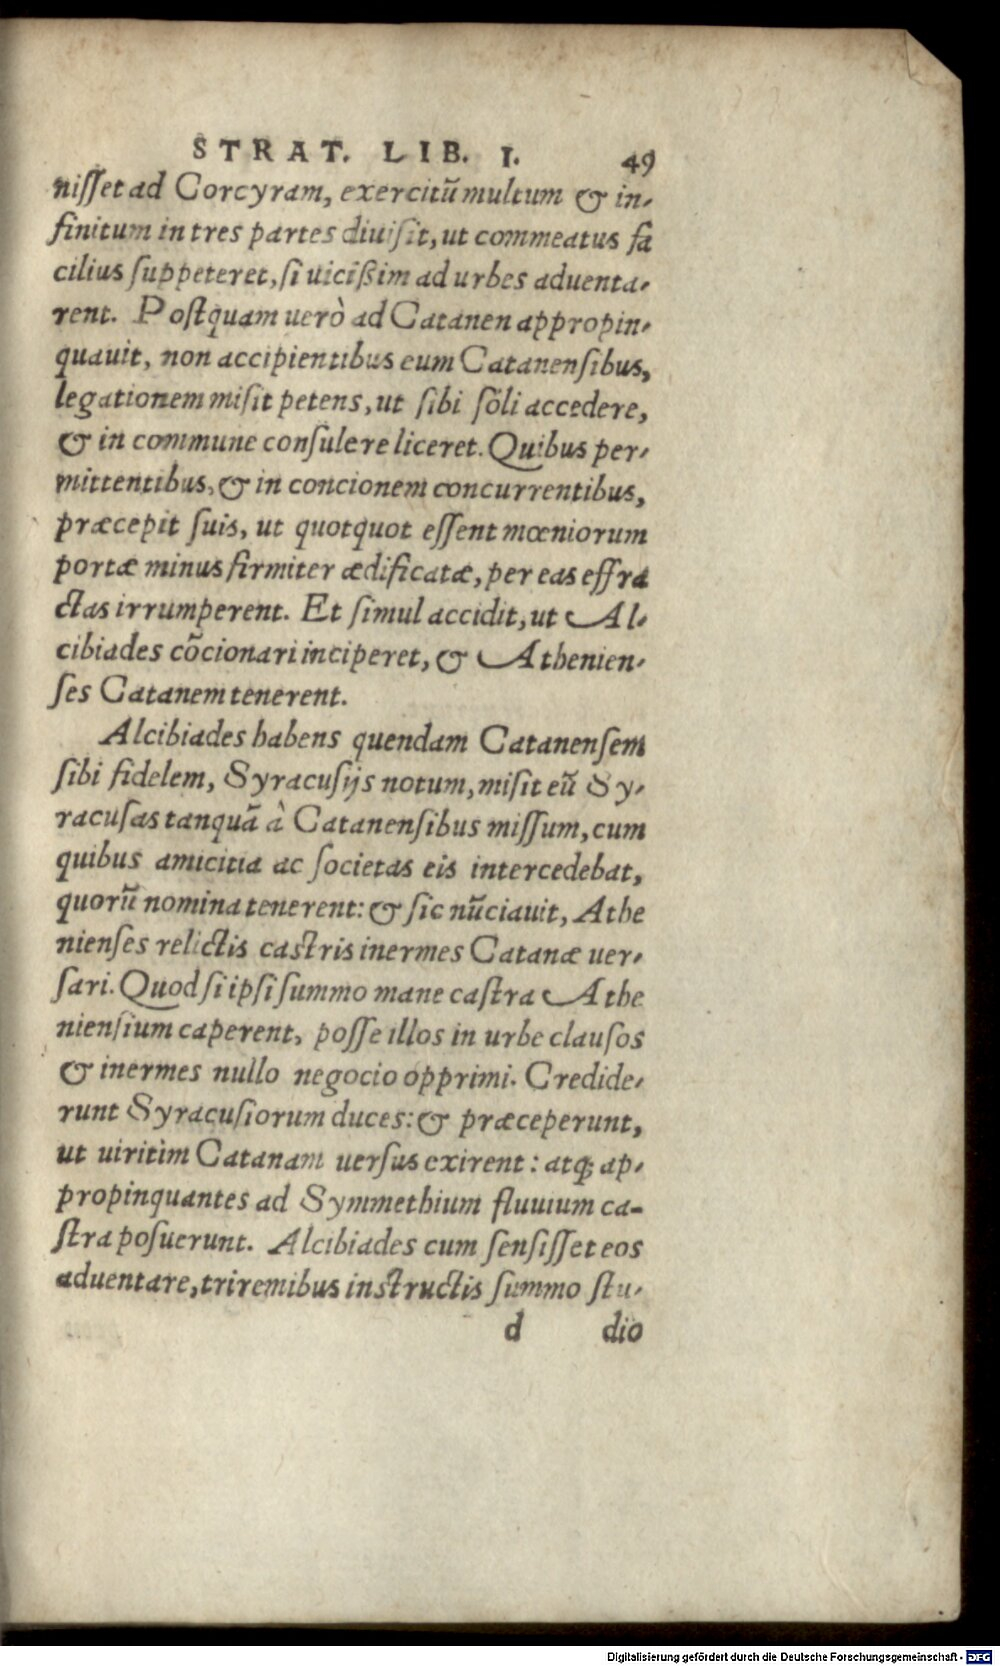 STRAT. LIB. I. 49
niſſet ad Corcyram, exercitũ multum & in-
finitum in tres partes diuiſit, ut commeatus fa
cilius ſuppeteret, ſi uicißim ad urbes aduenta-
rent. Poſtquam uerò ad Catanen appropin-
quauit, non accipientibus eum Catanenſibus,
legationem miſit petens, ut ſibi ſoli accedere,
& in commune conſulere liceret. Quibus per-
mittentibus, & in concionem concurrentibus,
præcepit ſuis, ut quotquot eſſent mœniorum
portæ minus firmiter ædificatæ, per eas effra
ctas irrumperent. Et ſimul accidit, ut Al-
cibiades cõcionari inciperet, & Athenien-
ſes Catanem tenerent.
Alcibiades habens quendam Catanenſem
ſibi fidelem, Syracuſijs notum, miſit eũ Sy-
racuſas tanquã à Catanenſibus miſſum, cum
quibus amicitia ac ſocietas eis intercedebat,
quorũ nomina tenerent: & ſic nũciauit, Athe
nienſes relictis caſtris inermes Catanæ uer-
ſari. Quod ſi ipſi ſummo mane caſtra Athe
nienſium caperent, poſſe illos in urbe clauſos
& inermes nullo negocio opprimi. Credide-
runt Syracuſiorum duces: & præceperunt,
ut uiritim Catanam uerſus exirent: atq; ap-
propinquantes ad Symmethium fluuium ca-
ſtra poſuerunt. Alcibiades cum ſenſiſſet eos
aduentare, triremibus inſtructis ſummo ſtu-
d dio
Digitalisierung gefördert durch die Deutsche Forschungsgemeinschaft - DFG